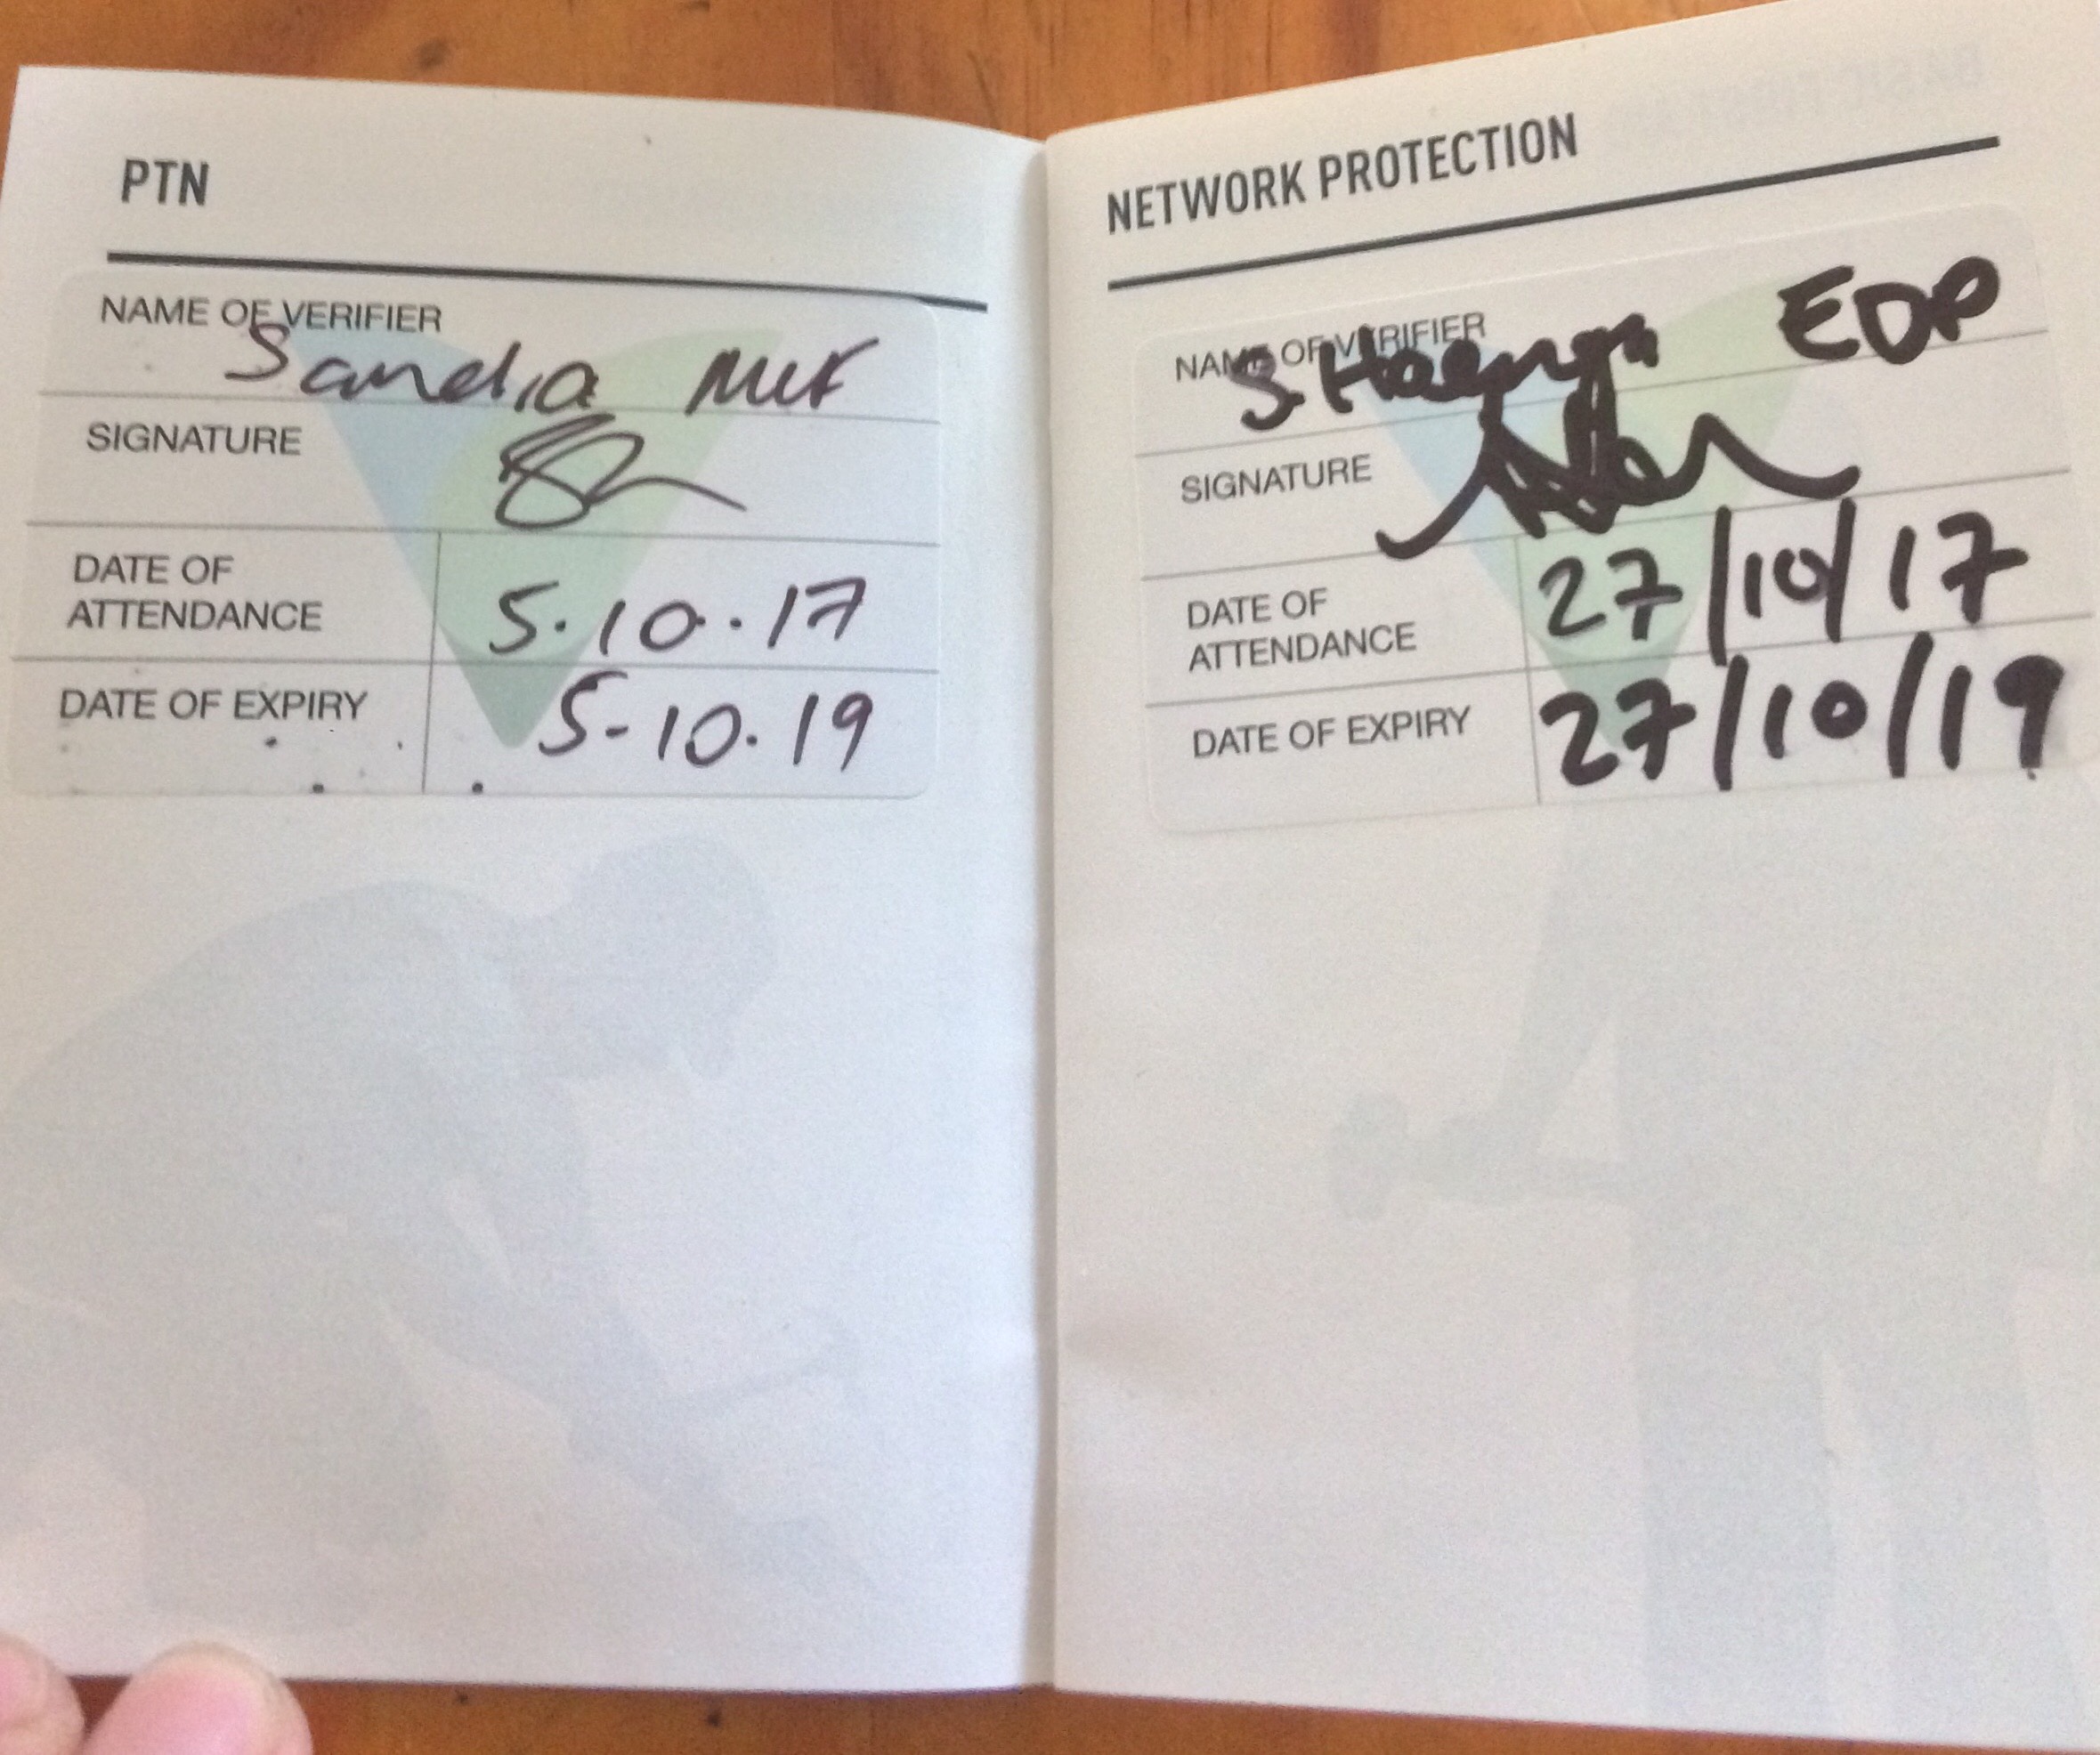 PTN
NAME OF VERIFIER
Sandra
SIGNATURE
DATE OF
ATTENDANCE
5.10.17
DATE OF EXPIRY
5-10.19
NETWORK PROTECTION
NAME OF VERIFIER
S. EDP
SIGNATURE
DATE OF
ATTENDANCE
27/10/17
DATE OF EXPIRY
27/10/19